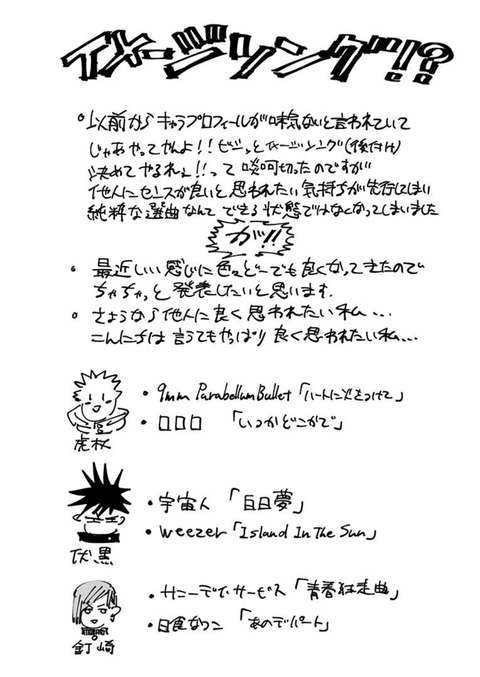 イメージソング!!?
°以前からキャラプロフィールが味気ないと言われていて
じゃあやってやんよ!!ビシッとイメージソング(後付け)
決めてやるれょ!!って啖呵切ったのですが
他人にセンスが良いと思われたい気持ちが先行してしまい
純粋な選曲なんてできる状態ではなくなってしまいました
ガッ!!
° 最近しいい感じに色々どーでも良くなってきたので
ちゃちゃっと発表したいと思います。
° さようなら他人に良く思われたい私...
こんにちは 言うてもやっぱり良く思われたい私...
・9mm Parabellum Bullet「ハートに火をつけて」
・口口口 「いつかどこかで」
虎杖
・宇宙人 「白日夢」
・weezer「Island In The Sun」
伏黒
・サニーデイ・サービス「青春狂走曲」
・日食なつこ 「あのデパート」
釘崎